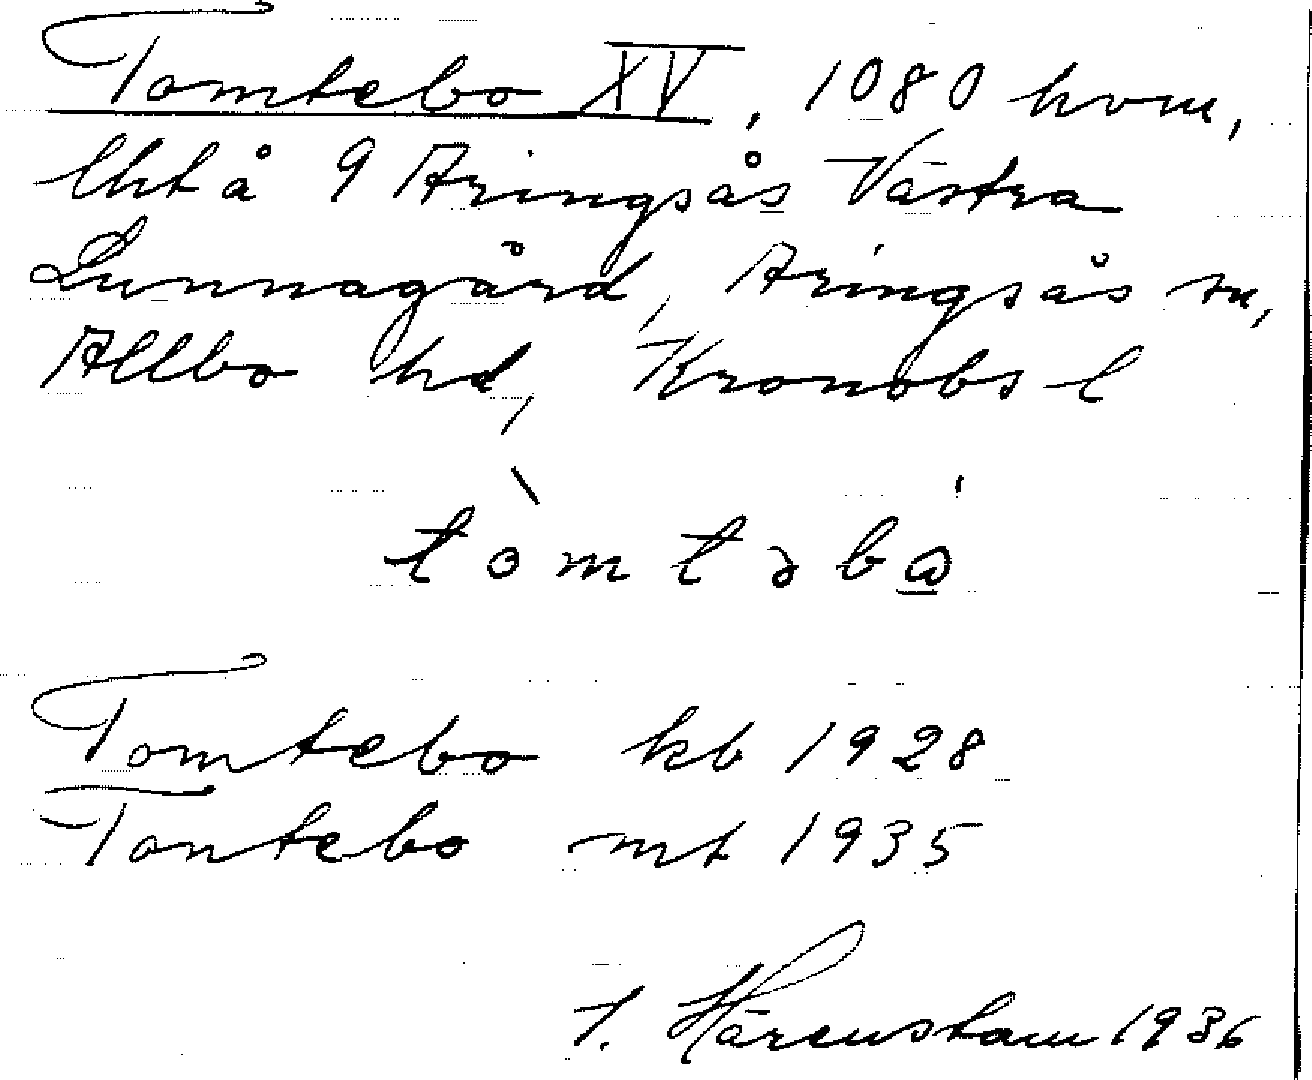 Tomtebo XV, 1080 kvm,
lht å 9 Aringsås Västra
Lunnagård, Aringsås sn,
Allbo hd, Kronobs l
tòmtəbώ̲
Tomtebo kb 1928
Tontebo mt 1935
Härenstam 1936